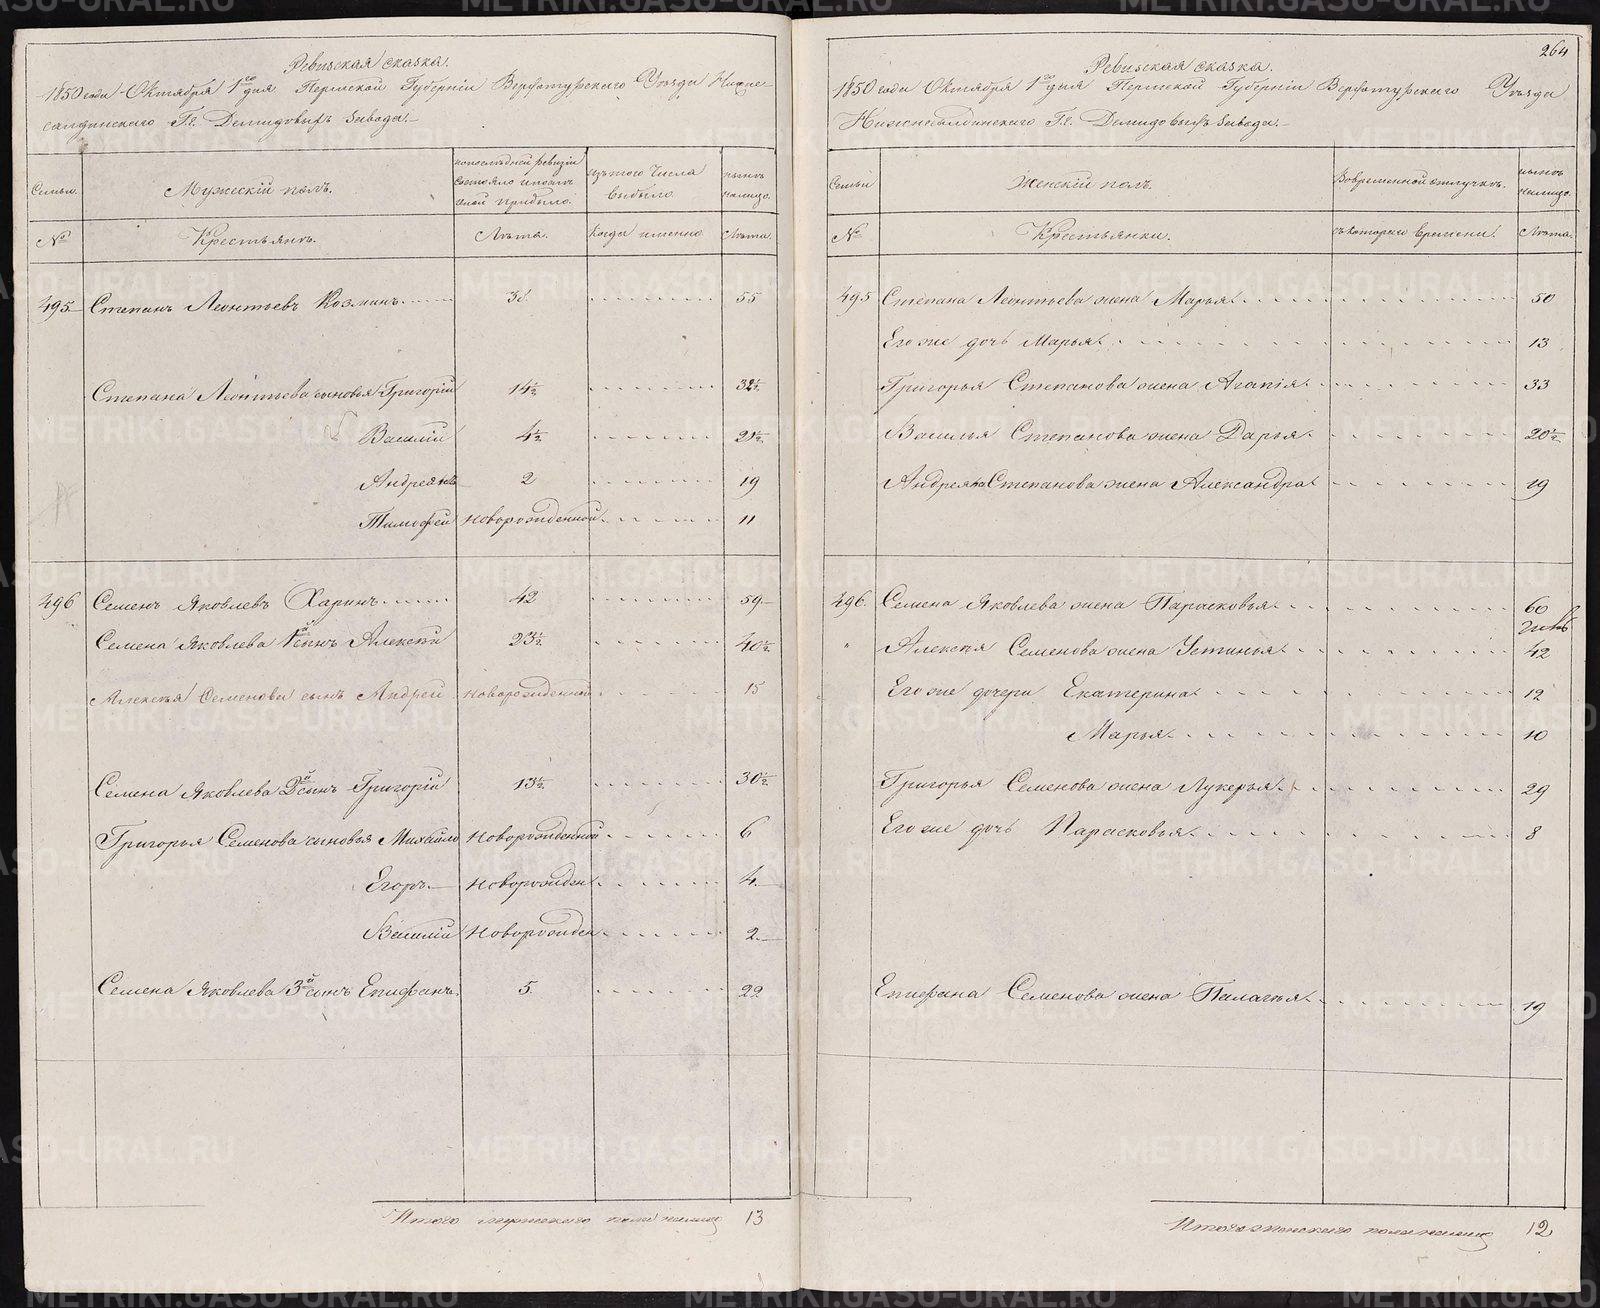 Ревизская сказка.
1850 года Октября 1го дня Пермской Губерніи Верхотурскаго Уѣзда Нижне
салдинскаго Г.г. Демидовыхъ завода.
Семьи.
Мужескій полъ.
по последней ревизіи
состояло и послѣ
оной прибыло.
изъ того числа
выбыло.
нынѣ
налицо.
№
Крестьянъ.
Лѣта.
Когда именно
Лѣта.
495 Степанъ Леонтьевъ Козминъ 38 55
Степана Леонтьева сыновья Григорій 14½ 32½
Василій 4½ 21½
Андреянъ 2 19
Тимофей новорожденной 11
496 Семенъ Яковлевъ Харинъ 42 59
Семена Яковлева 1й сынъ Алексѣй 23½ 40½
Алексѣя Семенова сынъ Андрей новорожденной 15
Семена Яковлева 2й сынъ Григорій 13½ 30½
Григорья Семенова сыновья Михайло новорожденной 6
Егоръ новорожден 4
Василій новорожден 2
Семена Яковлева 3й сынъ Епифанъ 5 22
Итого мужескаго пола налицо 13
264
Ревизская сказка.
1850 года Октября 1го дня Пермской Губерніи Верхотурскаго Уѣзда
Нижнесалдинскаго Г.г. Демидовыхъ завода.
Семьи
Женскій полъ.
Во временной отлучкѣ.
нынѣ
налицо.
№
Крестьянки.
съ котораго времени.
Лѣта.
495 Степана Леонтьева жена Марья 50
Его же дочь Марья 13
Григорья Степанова жена Агапія 33
Василья Степанова жена Дарья 20½
Андреяна Степанова жена Александра 19
496. Семена Яковлева жена Парасковья 60
" Алексѣя Семенова жена Устинья 42
Его же дочери Екатерина 12
Марья 10
Григорья Семенова жена Лукерья 29
Его же дочь Парасковья 8
Епифана Семенова жена Палагѣя 19
Итого женскаго пола налицо 12
METRIKI.GASO-URAL.RU